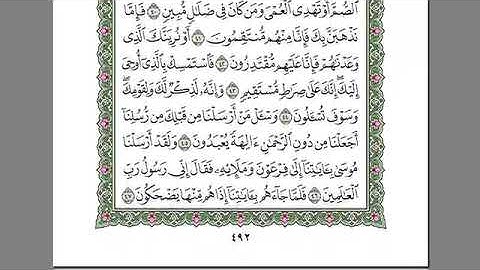 ٱلصُّمَّ أَوۡ تَهۡدِي ٱلۡعُمۡيَ وَمَن كَانَ فِي ضَلَٰلٖ مُّبِينٖ ٤٠ فَإِمَّا
نَذۡهَبَنَّ بِكَ فَإِنَّا مِنۡهُم مُّنتَقِمُونَ ٤١ أَوۡ نُرِيَنَّكَ ٱلَّذِي
وَعَدۡنَٰهُمۡ فَإِنَّا عَلَيۡهِم مُّقۡتَدِرُونَ ٤٢ فَٱسۡتَمۡسِكۡ بِٱلَّذِيٓ أُوحِيَ
إِلَيۡكَۖ إِنَّكَ عَلَىٰ صِرَٰطٖ مُّسۡتَقِيمٖ ٤٣ وَإِنَّهُۥ لَذِكۡرٞ لَّكَ وَلِقَوۡمِكَۖ
وَسَوۡفَ تُسۡـَٔلُونَ ٤٤ وَسۡـَٔلۡ مَنۡ أَرۡسَلۡنَا مِن قَبۡلِكَ مِن رُّسُلِنَآ
أَجَعَلۡنَا مِن دُونِ ٱلرَّحۡمَٰنِ ءَالِهَةٗ يُعۡبَدُونَ ٤٥ وَلَقَدۡ أَرۡسَلۡنَا
مُوسَىٰ بِـَٔايَٰتِنَآ إِلَىٰ فِرۡعَوۡنَ وَمَلَإِيْهِۦ فَقَالَ إِنِّي رَسُولُ رَبِّ
ٱلۡعَٰلَمِينَ ٤٦ فَلَمَّا جَآءَهُم بِـَٔايَٰتِنَآ إِذَا هُم مِّنۡهَا يَضۡحَكُونَ ٤٧
٤٩٢